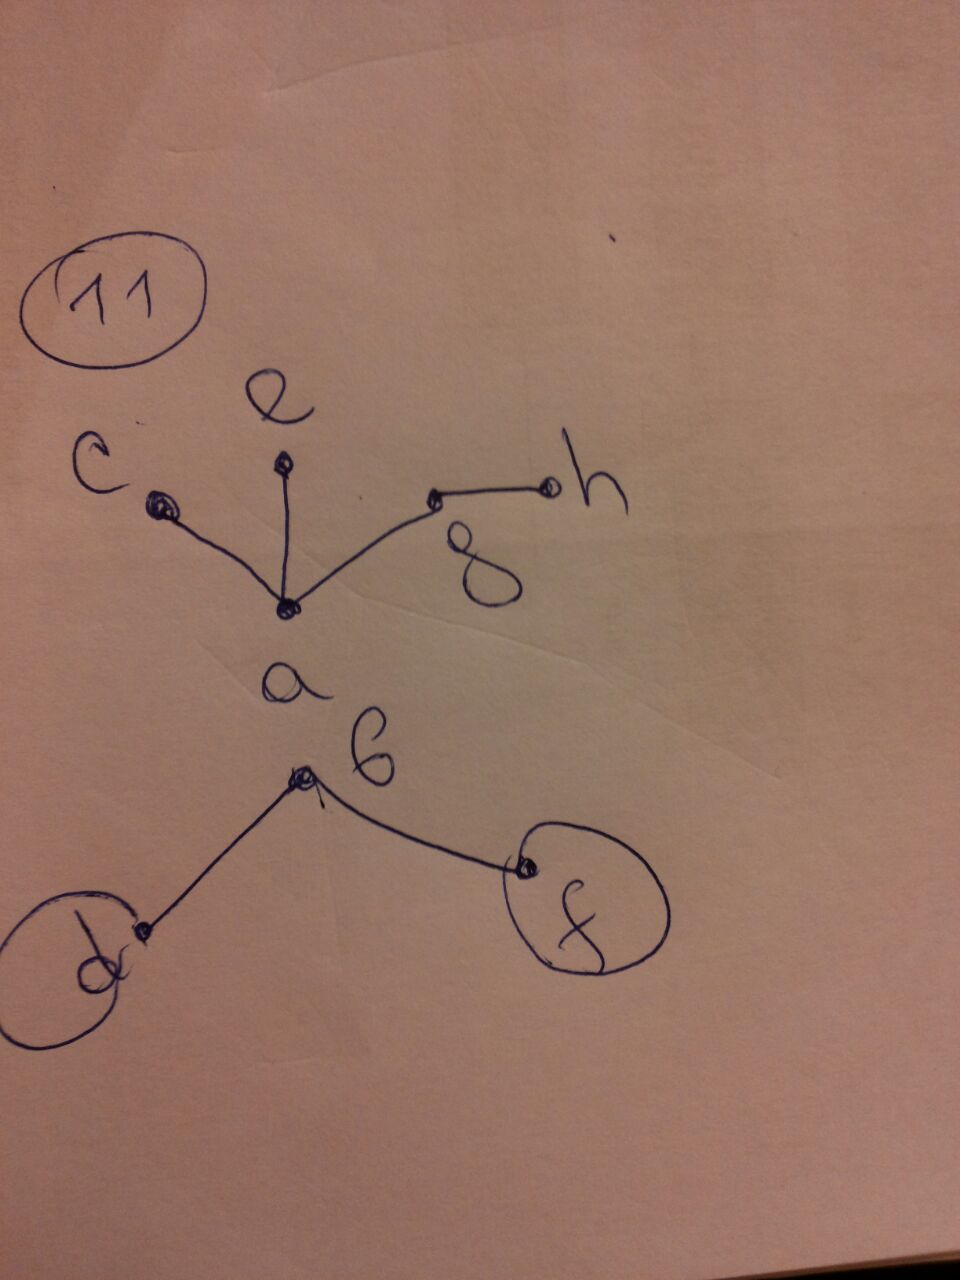 11
e
c
h
g
a
b
f
d